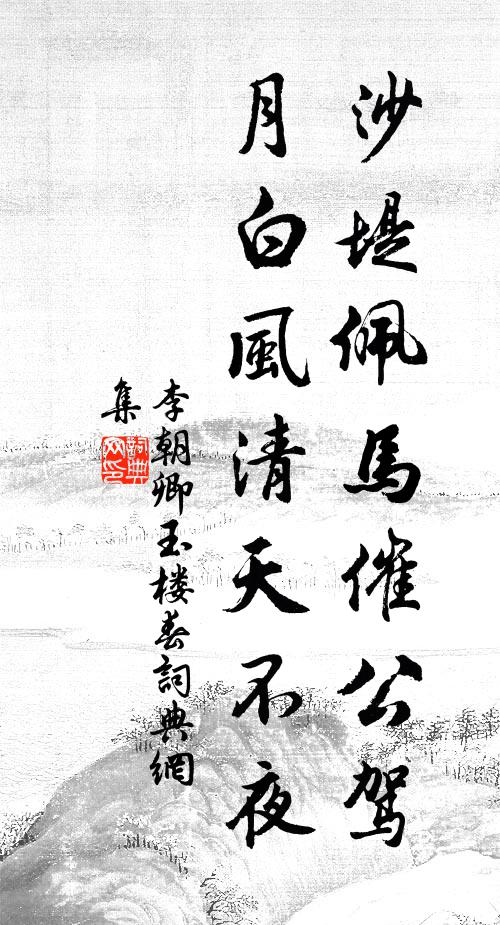 沙堤佩馬催公駕
月白風清天不夜
李朝卿玉楼春詞典網
集
詞典網印